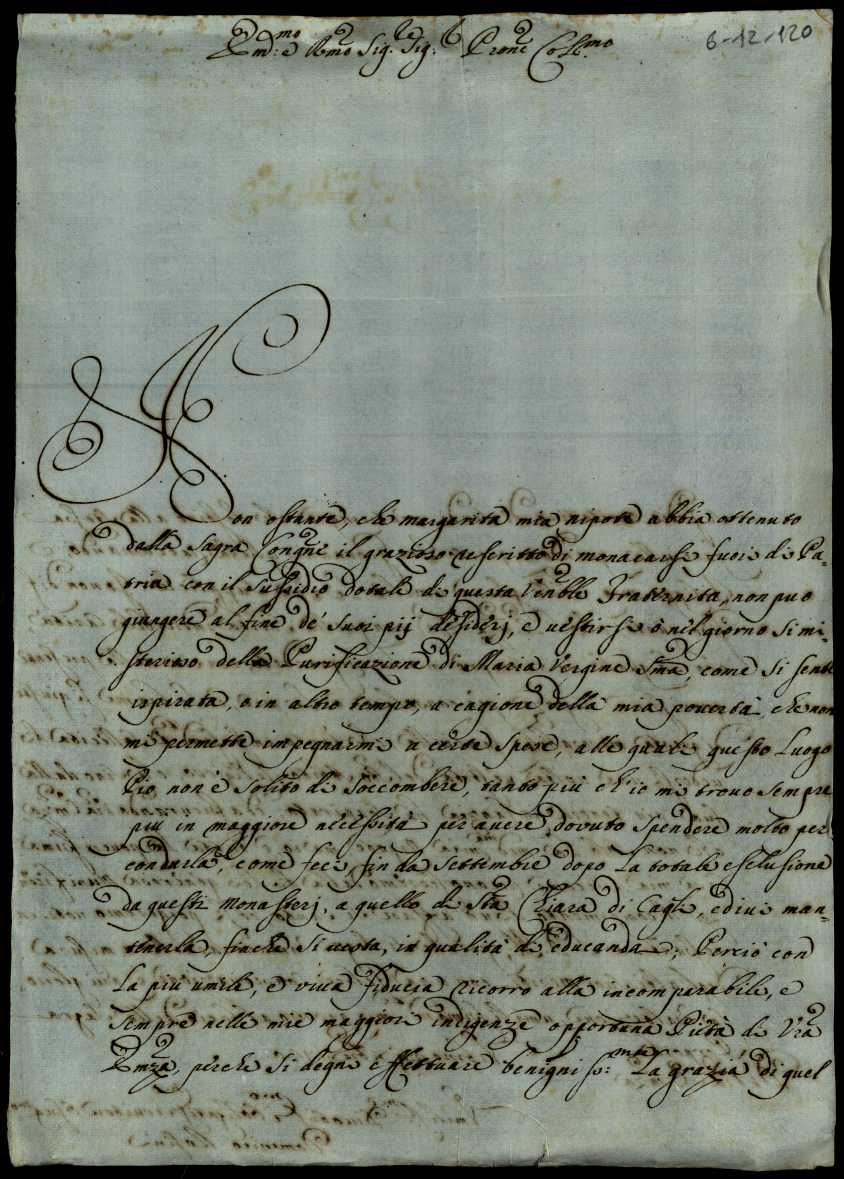 Em.mo e R.mo Sig.re Sig.r Prone Col.mo
6-12-120
Non ostante, che margarita mia nipote abbia ottenuto
dalla Sagra Congne il grazioso rescritto di monacarsi fuori di Pa-
tria con il sussidio dotale di questa Venble Fraternita, non può
giungere al fine de' suoi pij desiderj, e vestirsi o nel giorno si mi-
sterioso della Purificazione di Maria Vergine Sma, come si sente
ispirata, o in altro tempo, a cagione della mia povertà, che non
mi permette impegnarmi a certe spese, alle quali questo Luogo
Pio non è solito di soccombere, tanto più ch'io mi trovo sempre
più in maggiore necessità per avere dovuto spendere molto per
condurla, come feci, fin da Settembre dopo la totale esclusione
da questi Monasterj, a quello di Sta Chiara di Cagli, ed ivi man-
tenerla, finche si vesta, in qualità di educanda; Perciò con
la più umile, e viva fiducia ricorro alla incomparabile, e
sempre nelle mie maggiori indigenze opportuna Pietà di Vra
Emza, perche si degni effettuare benigniss:mte la grazia di quel